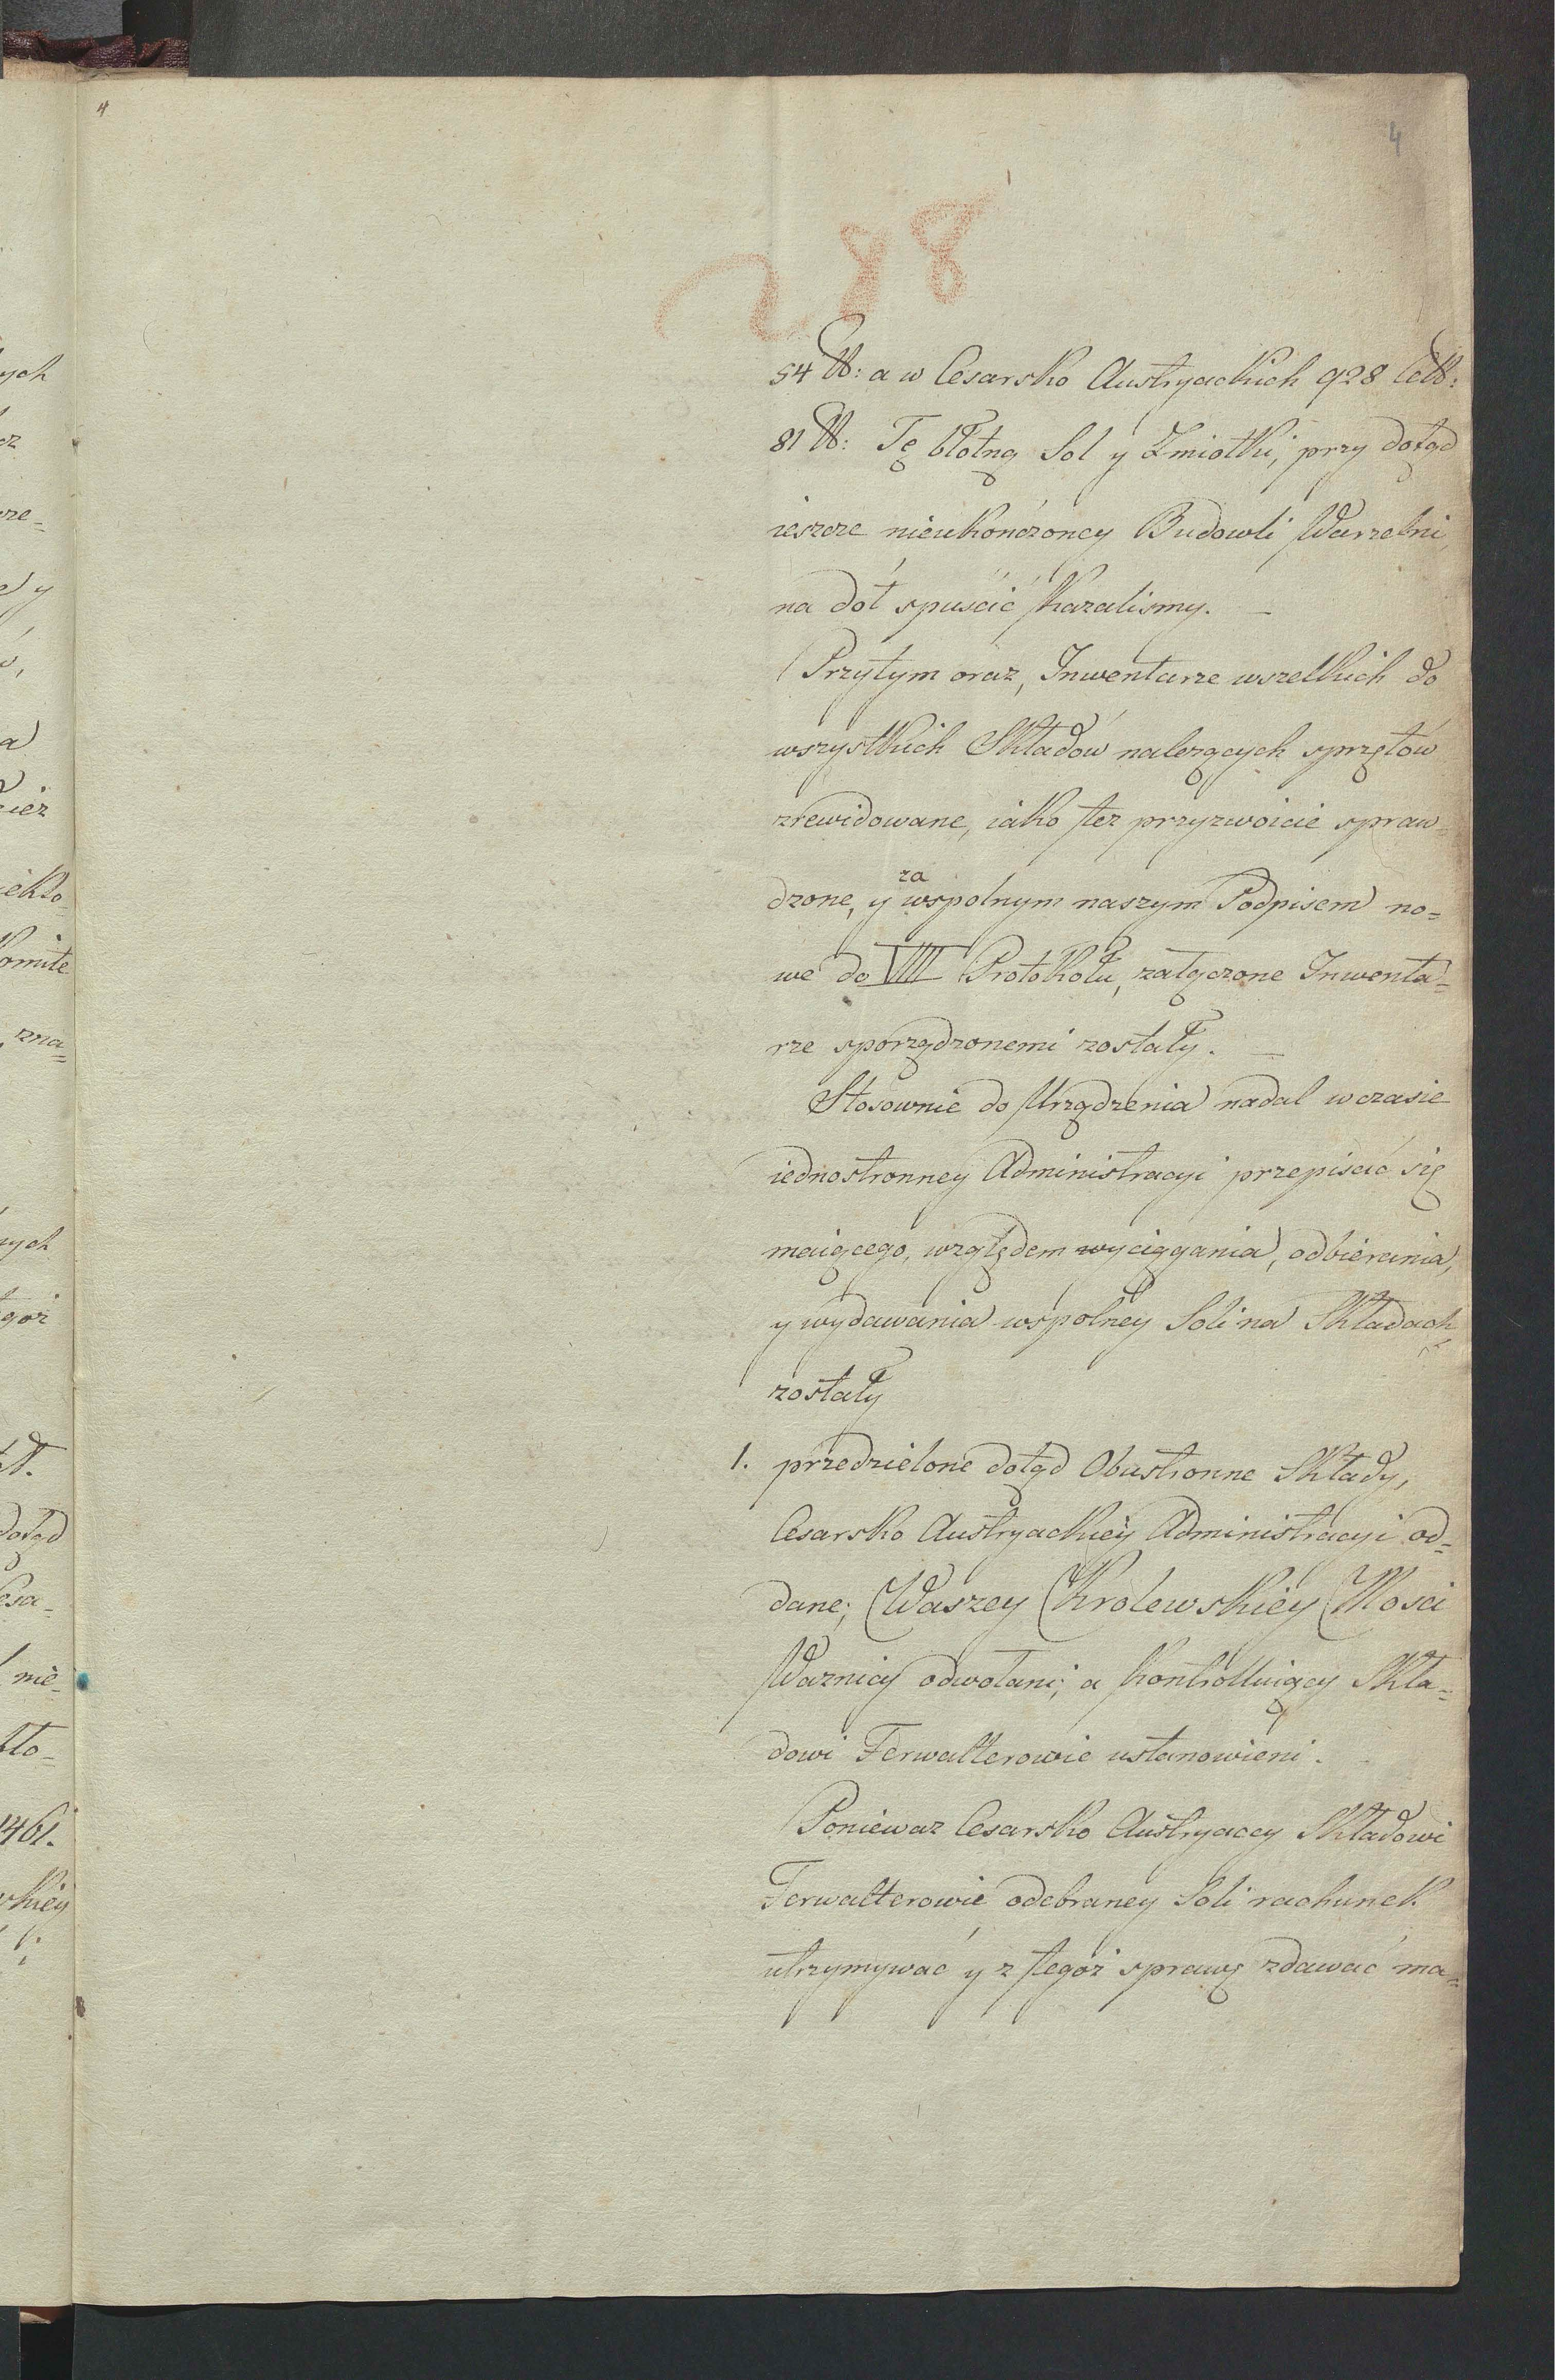 4
4
288
54 ℔: a w Cesarsko Austryackich 928 Cet℔:
81 ℔: Tę błotną Sol y Zmiotki, przy dotąd
ieszcze nieukończoney Budowli Warzelni,
na dół spuścić kazalismy. —
Przytym oraz, Inwentarze wszelkich do
wszystkich Składów nalezących sprzętów
zrewidowane, iako tez przyzwoicie spraw-
dzone, y za wspolnym naszym Podpisem no=
we do VIIII Protokołu, załączone Inwenta=
rze sporządzonemi zostały. —
Stosownie do Urządzenia nadal w czasie
iednostronney Administracyi przepisać się
maiącego, względem wyciągania, odbierania,
y wydawania wspolney Soli na Składach,
zostały
1. przedzielone dotąd Obustronne Składy,
Cesarsko Austryackiey Administracyi od=
dane; Waszey Krolewskiey Mosci
Waznicy odwołani; a kontrolluiący Skła=
dowi Ferwalterowie ustanowieni.
Poniewaz Cesarsko Austryaccy Składowi
Ferwalterowie odebraney Soli rachunek
utrzymywać y z tegoż sprawę zdawać ma=
ych
cz
rze=
y
a
iez
iekto=
Komite
zna=
nych
goż
dotąd
Cesa=
nie=
bło=
1461.
skiey